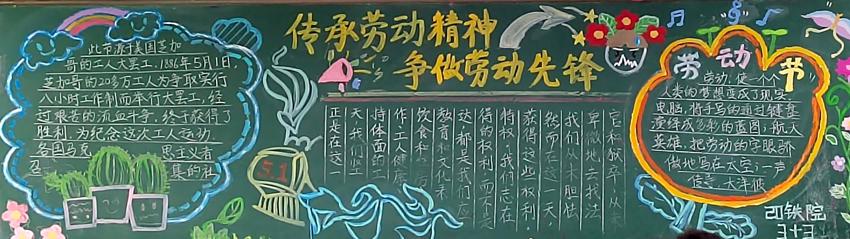 传承劳动精神
争做劳动先锋
此节源于美国芝加
哥的工人大罢工,1886年5月1日,
芝加哥的20多万工人为争取实行
八小时工作制而举行大罢工,经
过艰苦的流血斗争,终于获得了
胜利,为纪念这次工人运动,
各国马克 思主义者
召 真的社
5.1
官和狱卒,从
卑微地去找法
我们从未胆怯
然而在这一天,
获得这些权利,
特权,我们志在
得的权利,而不是
这都是我们应
教育和文化来
饮食和
作,工人健康
持体面的工
天,我们坚
正是在这
劳动节
劳动,使一个个
人类的梦想变成了现实
电脑,将手写的通过键盘
演绎成多彩的蓝图,航人
英雄,把劳动的字眼骄
傲地写在太空,一声
信念,大洋彼